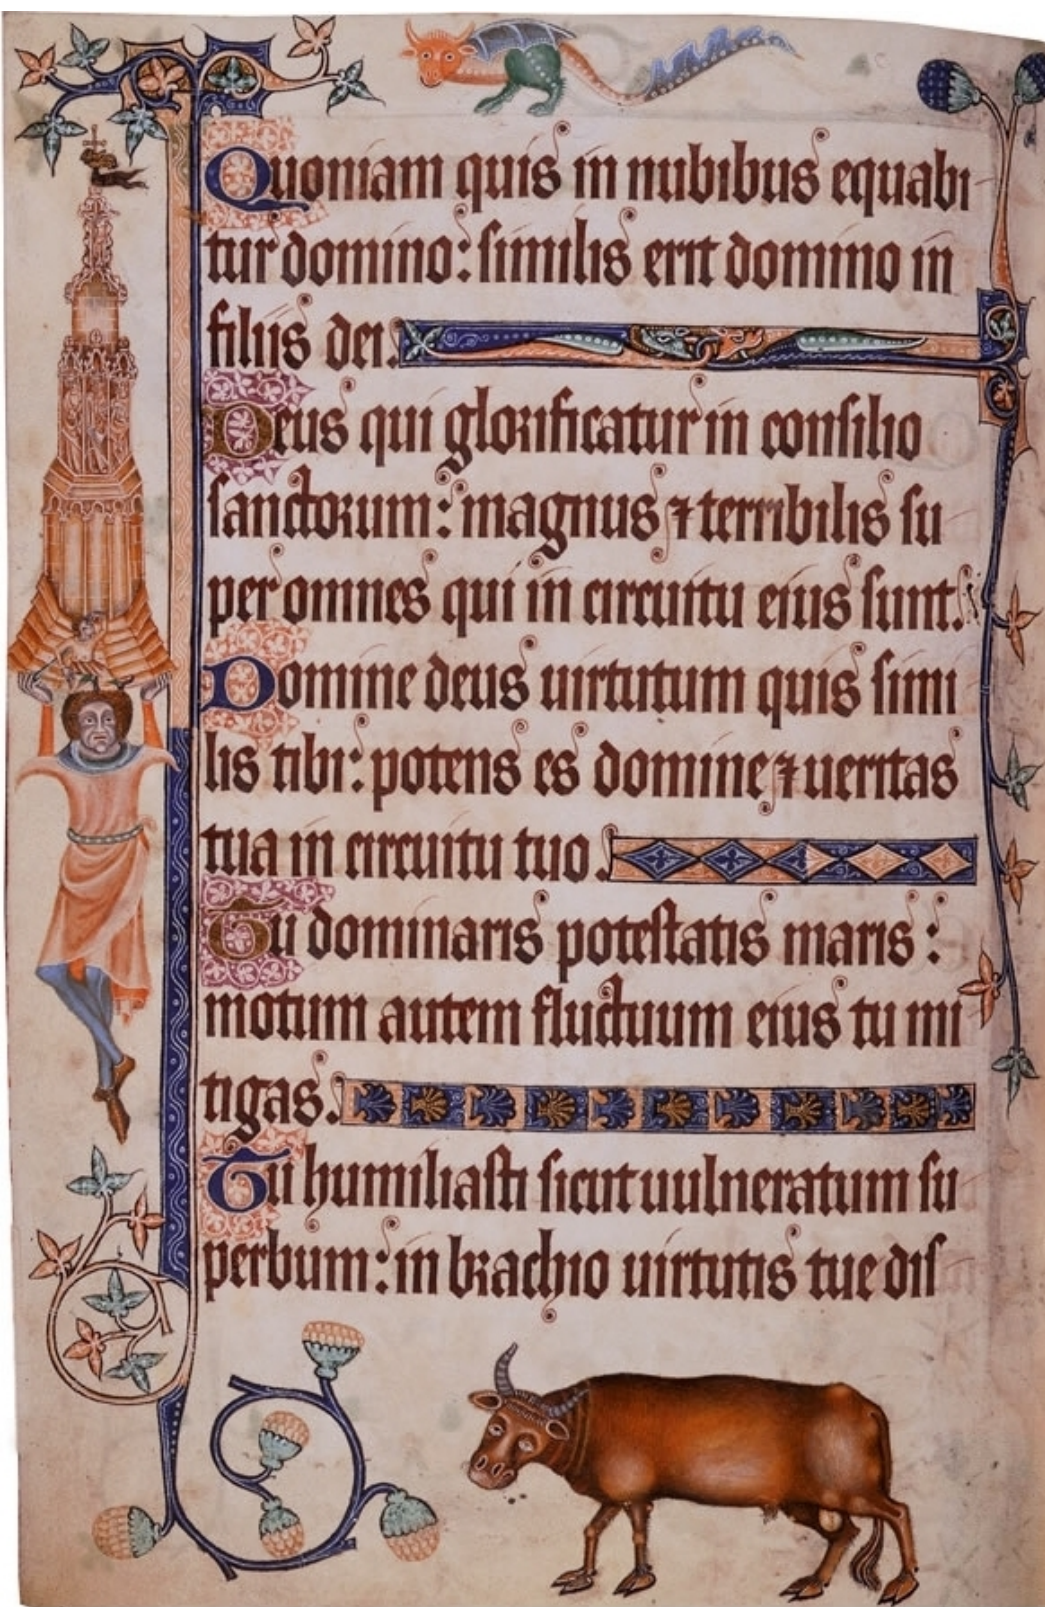 Quoniam quis in nubibus equabi
tur domino: similis erit domino in
filiis dei.
Deus qui glorificatur in consilio
sanctorum: magnus ⁊ terribilis su
per omnes qui in circuitu eius sunt.
Domine deus uirtutum quis simi
lis tibi: potens es domine ⁊ ueritas
tua in circuitu tuo.
Tu dominaris potestatis maris:
motum autem fluctuum eius tu mi
tigas.
Tu humiliasti sicut uulneratum su
perbum: in brachio uirtutis tue dis